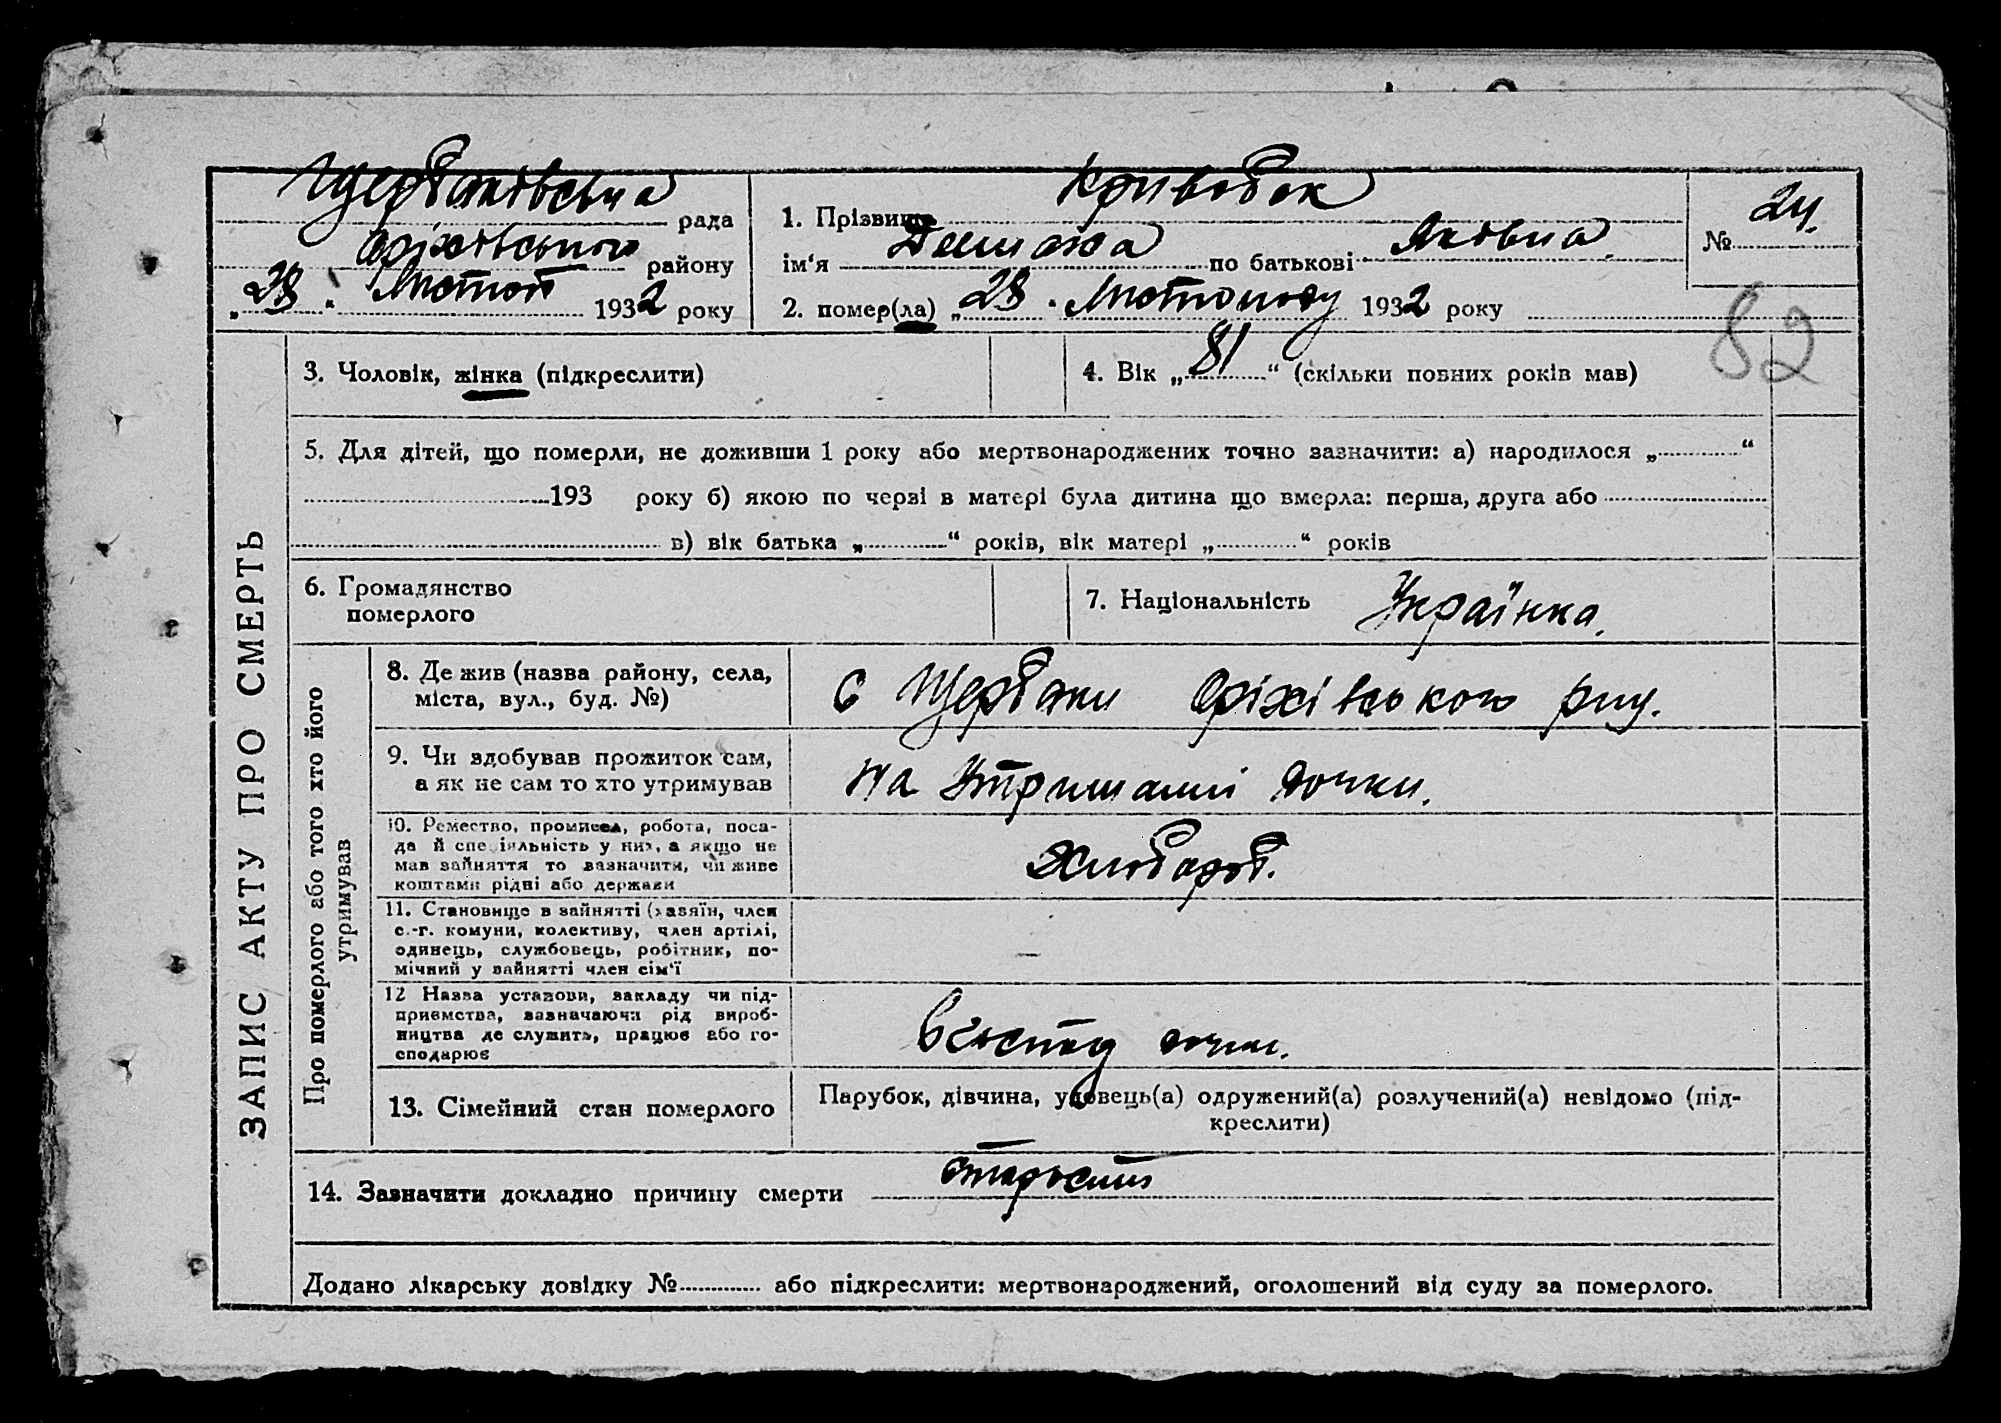 Щербаківська рада
Оріхівського району
„28“ Листоп 1932 року
1. Прізвище Кривобок
ім'я по батькові Яківна
2. помер(ла) „28“ Листопаду 1932 року
№ 24.
82
ЗАПИС АКТУ ПРО СМЕРТЬ
3. Чоловік, жінка (підкреслити)
4. Вік „81“ (скільки повних років мав)
5. Для дітей, що померли, не доживши 1 року або мертвонароджених точно зазначити: а) народилося „ “
193 року б) якою по черзі в матері була дитина що вмерла: перша, друга або
в) вік батька „ “ років, вік матері „ “ років
6. Громадянство
померлого
7. Національність Українка.
Про померлого або того хто його
утримував
8. Де жив (назва району, села,
міста, вул., буд. №)
с Щербаки Оріхівського рну.
9. Чи здобував прожиток сам,
а як не сам то хто утримував
На Утриманні дочки.
10. Ремество, промисел, робота, поса-
да й спеціяльність у них, а якщо не
мав зайняття то зазначити, чи живе
коштами рідні або держави
Хлібороб.
11. Становище в зайнятті (хазяїн, член
с.-г. комуни, колективу, член артілі,
одинець, службовець, робітник, по-
мічний у зайнятті член сім'ї
—
12 Назва установи, закладу чи під-
приємства, зазначаючи рід вироб-
ництва де служить, працює або го-
сподарює
дочки.
13. Сімейний стан померлого
Парубок, дівчина, удовець(а) одружений(а) розлучений(а) невідомо (під-
креслити)
14. Зазначити докладно причину смерти старость
Додано лікарську довідку № або підкреслити: мертвонароджений, оголошений від суду за померлого.